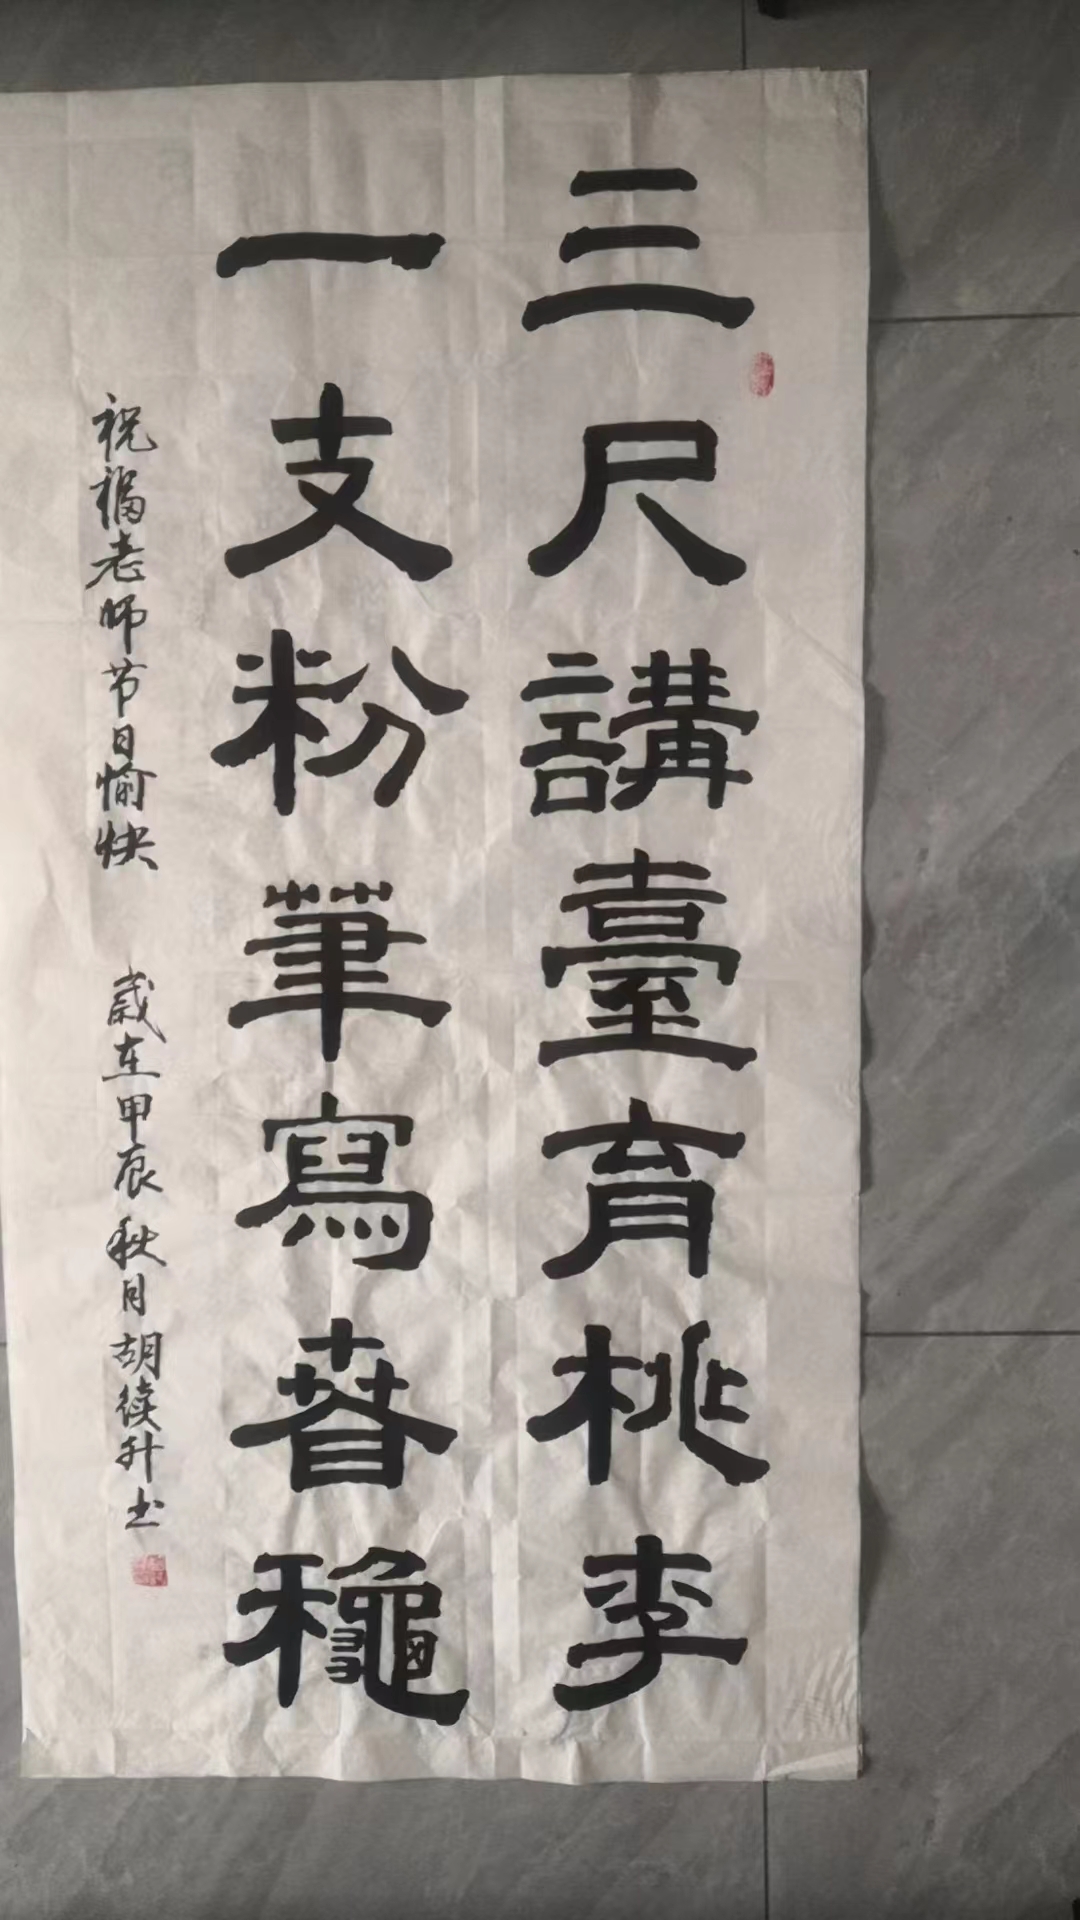 三尺講臺育桃李
一支粉筆寫春龝
祝福老师节日愉快 歲在甲辰秋月胡续升书